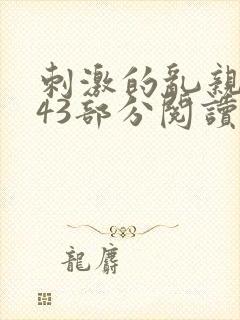 刺激的乱親
43部分閱讀
龍麝